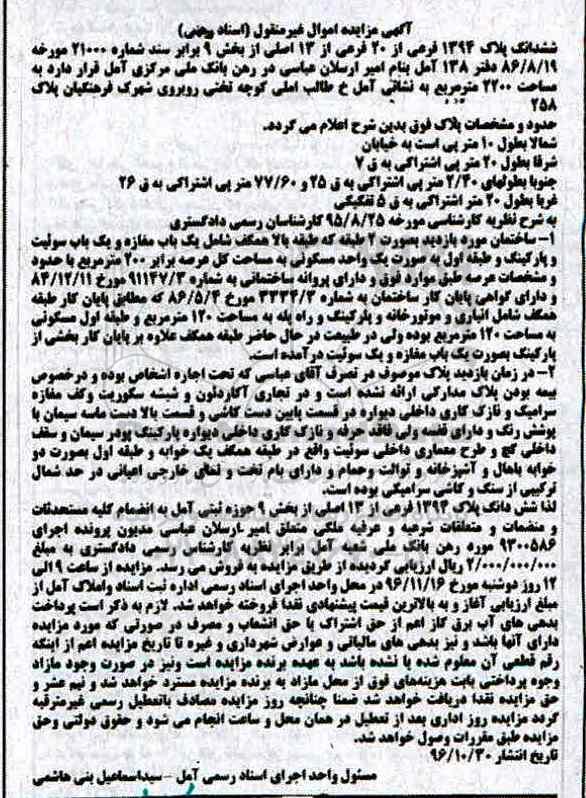 آگهی مزایده اموال غیرمنقول (اسناد رهنی)
ششدانگ پلاک ۱۳۹۴ فرعی از ۲۰ فرعی از ۱۳ اصلی از بخش ۹ برابر سند شماره ۲۱۰۰۰ مورخه
۸۶/۸/۱۹ دفتر ۱۳۸ آمل بنام امیر ارسلان عباسی در رهن بانک ملی مرکزی آمل قرار دارد به
مساحت ۲۲۰۰ مترمربع به نشانی آمل خ طالب املی کوچه تختی روبروی شهرک فرهنگیان پلاک
۲۵۸
حدود و مشخصات پلاک فوق بدین شرح اعلام می گردد.
شمالا بطول ۱۰ متر پی است به خیابان
شرقا بطول ۲۰ متر پی اشتراکی به ق ۷
جنوبا بطولهای ۲/۴۰ متر پی اشتراکی به ق ۲۵ و ۷۷/۶۰ متر پی اشتراکی به ق ۲۶
غربا بطول ۲۰ متر اشتراکی به ق ۵ تفکیکی
به شرح نظریه کارشناسی مورخه ۹۵/۸/۲۵ کارشناسان رسمی دادگستری
۱- ساختمان مورد بازدید بصورت ۲ طبقه که طبقه بالا همکف شامل یک باب مغازه و یک باب سوئیت
و پارکینگ و طبقه اول به صورت یک واحد مسکونی به مساحت کل عرصه برابر ۲۰۰ مترمربع با حدود
و مشخصات عرصه طبق موارد فوق و دارای پروانه ساختمانی به شماره ۹۱۱۴۷/۳ مورخ ۸۴/۱۲/۱۱
و دارای گواهی پایان کار ساختمان به شماره ۳۳۳۴/۳ مورخ ۸۶/۵/۴ که مطابق پایان کار طبقه
همکف شامل انباری و موتورخانه و پارکینگ و راه پله به مساحت ۱۲۰ مترمربع و طبقه اول مسکونی
به مساحت ۱۲۰ مترمربع بوده ولی در طبیعت در حال حاضر طبقه همکف علاوه بر پایان کار بخشی از
پارکینگ بصورت یک باب مغازه و یک سوئیت درآمده است.
۲- در زمان بازدید پلاک موصوف در تصرف آقای عباسی که تحت اجاره اشخاص بوده و درخصوص
بیمه بودن پلاک مدارکی ارائه نشده است و در تجاری آکاردئون و شیشه سکوریت وکف مغازه
سرامیک و نازک کاری داخلی دیواره در قسمت پایین دست کاشی و قسمت بالا دست ماسه سیمان با
پوشش رنگ و دارای قفسه ولی فاقد حرفه و نازک کاری داخلی دیواره پارکینگ پودر سیمان و سقف
داخلی گچ و طرح معماری داخلی سوئیت واقع در طبقه همکف یک خوابه و طبقه اول بصورت دو
خوابه باهال و آشپزخانه و توالت وحمام و دارای بام تخت و نمای خارجی اعیانی در حد شمال
ترکیبی از سنگ و کاشی سرامیکی بوده است.
لذا شش دانگ پلاک ۱۳۹۴ فرعی از ۱۳ اصلی از بخش ۹ حوزه ثبتی آمل به انضمام کلیه مستحدثات
و منضمات و متعلقات شرعیه و عرفیه ملکی متعلق امیر ارسلان عباسی مدیون پرونده اجرای
۹۳۰۰۵۸۶ مورد رهن بانک ملی شعبه آمل برابر نظریه کارشناس رسمی دادگستری به مبلغ
۲/۰۰۰/۰۰۰/۰۰۰ ریال ارزیابی گردیده از طریق مزایده به فروش می رسد. مزایده از ساعت ۹ الی
۱۲ روز دوشنبه مورخ ۹۶/۱۱/۱۶ در محل واحد اجرای اسناد رسمی اداره ثبت اسناد واملاک آمل از
مبلغ ارزیابی آغاز و به بالاترین قیمت پیشنهادی نقدا فروخته خواهد شد. لازم به ذکر است پرداخت
بدهی های آب برق گاز اعم از حق اشتراک یا حق انشعاب و مصرف در صورتی که مورد مزایده
دارای آنها باشد و نیز بدهی های مالیاتی و عوارض شهرداری و غیره تا تاریخ مزایده اعم از اینکه
رقم قطعی آن معلوم شده یا نشده باشد به عهده برنده مزایده است ونیز در صورت وجود مازاد
وجوه پرداختی بابت هزینه‌های فوق از محل مازاد به برنده مزایده مسترد خواهد شد و نیم عشر و
حق مزایده نقدا دریافت خواهد شد ضمنا چنانچه روز مزایده مصادف باتعطیل رسمی غیرمترقبه
گردد مزایده روز اداری بعد از تعطیل در همان محل و ساعت انجام می شود و حقوق دولتی وحق
مزایده طبق مقررات وصول خواهد شد.
تاریخ انتشار ۹۶/۱۰/۳۰
مسئول واحد اجرای اسناد رسمی آمل – سیداسماعیل بنی هاشمی